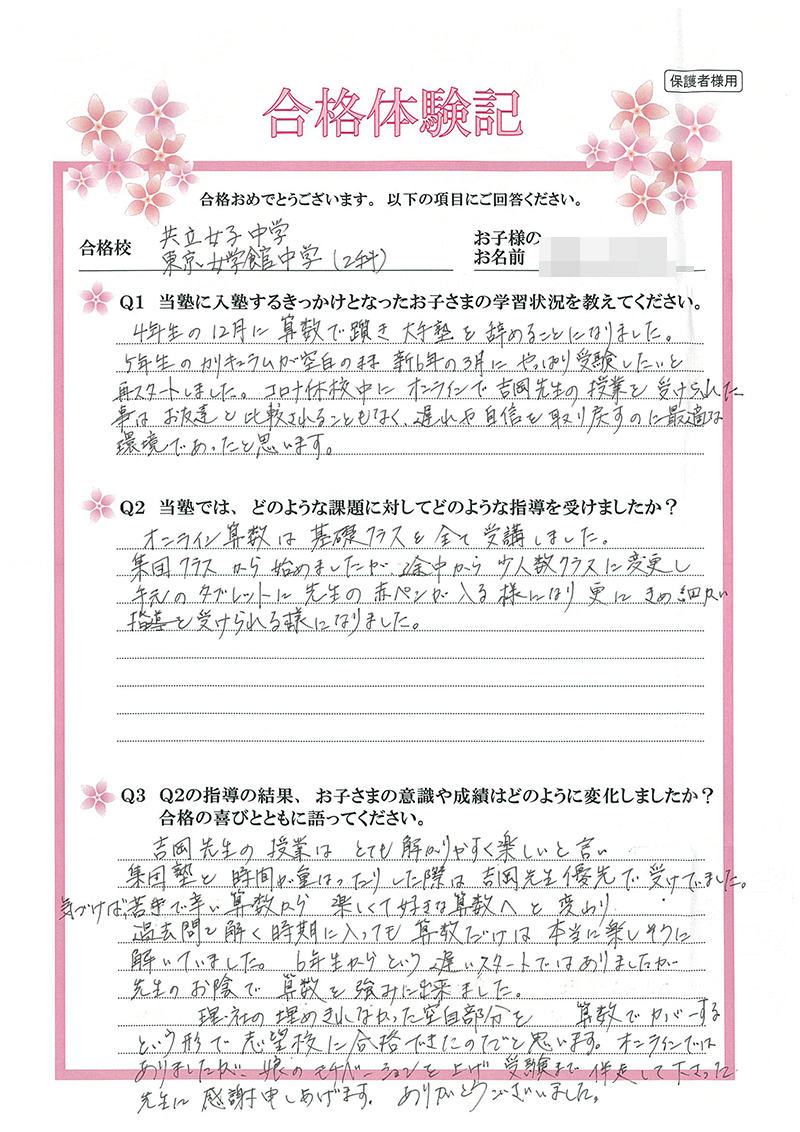 保護者様用
合格体験記
合格おめでとうございます。以下の項目にご回答ください。
合格校
共立女子中学
東京女学館中学（2科）
お子様の
お名前
Q1 当塾に入塾するきっかけとなったお子さまの学習状況を教えてください。
4年生の12月に算数で躓き大手塾を辞めることになりました。
5年生のカリキュラムが空白のまま新6年の3月にやっぱり受験したいと
再スタートしました。コロナ休校中にオンラインで吉岡先生の授業を受けられた
事はお友達と比較されることもなく、遅れや自信を取り戻すのに最適な
環境であったと思います。
Q2 当塾では、どのような課題に対してどのような指導を受けましたか？
オンライン算数は基礎クラスを全て受講しました。
集団クラスから始めましたが途中から少人数クラスに変更し
手元のタブレットに先生の赤ペンが入る様になり更にきめ細かい
指導を受けられる様になりました。
Q3 Q2の指導の結果、お子さまの意識や成績はどのように変化しましたか？
合格の喜びとともに語ってください。
吉岡先生の授業はとても解かりやすく楽しいと言い
集団塾と時間が重なったりした際は吉岡先生優先で受けてました。
気づけば苦手で辛い算数から楽しくて好きな算数へと変わり
過去問を解く時期に入っても算数だけは本当に楽しそうに
解いていました。6年生からという遅いスタートではありましたが
先生のお陰で算数を強みに出来ました。
理・社の埋めきれなかった空白部分を算数でカバーする
という形で志望校に合格できたのだと思います。オンラインでは
ありましたが、娘のモチベーションを上げ受験まで伴走して下さった
先生に感謝申しあげます。ありがとうございました。